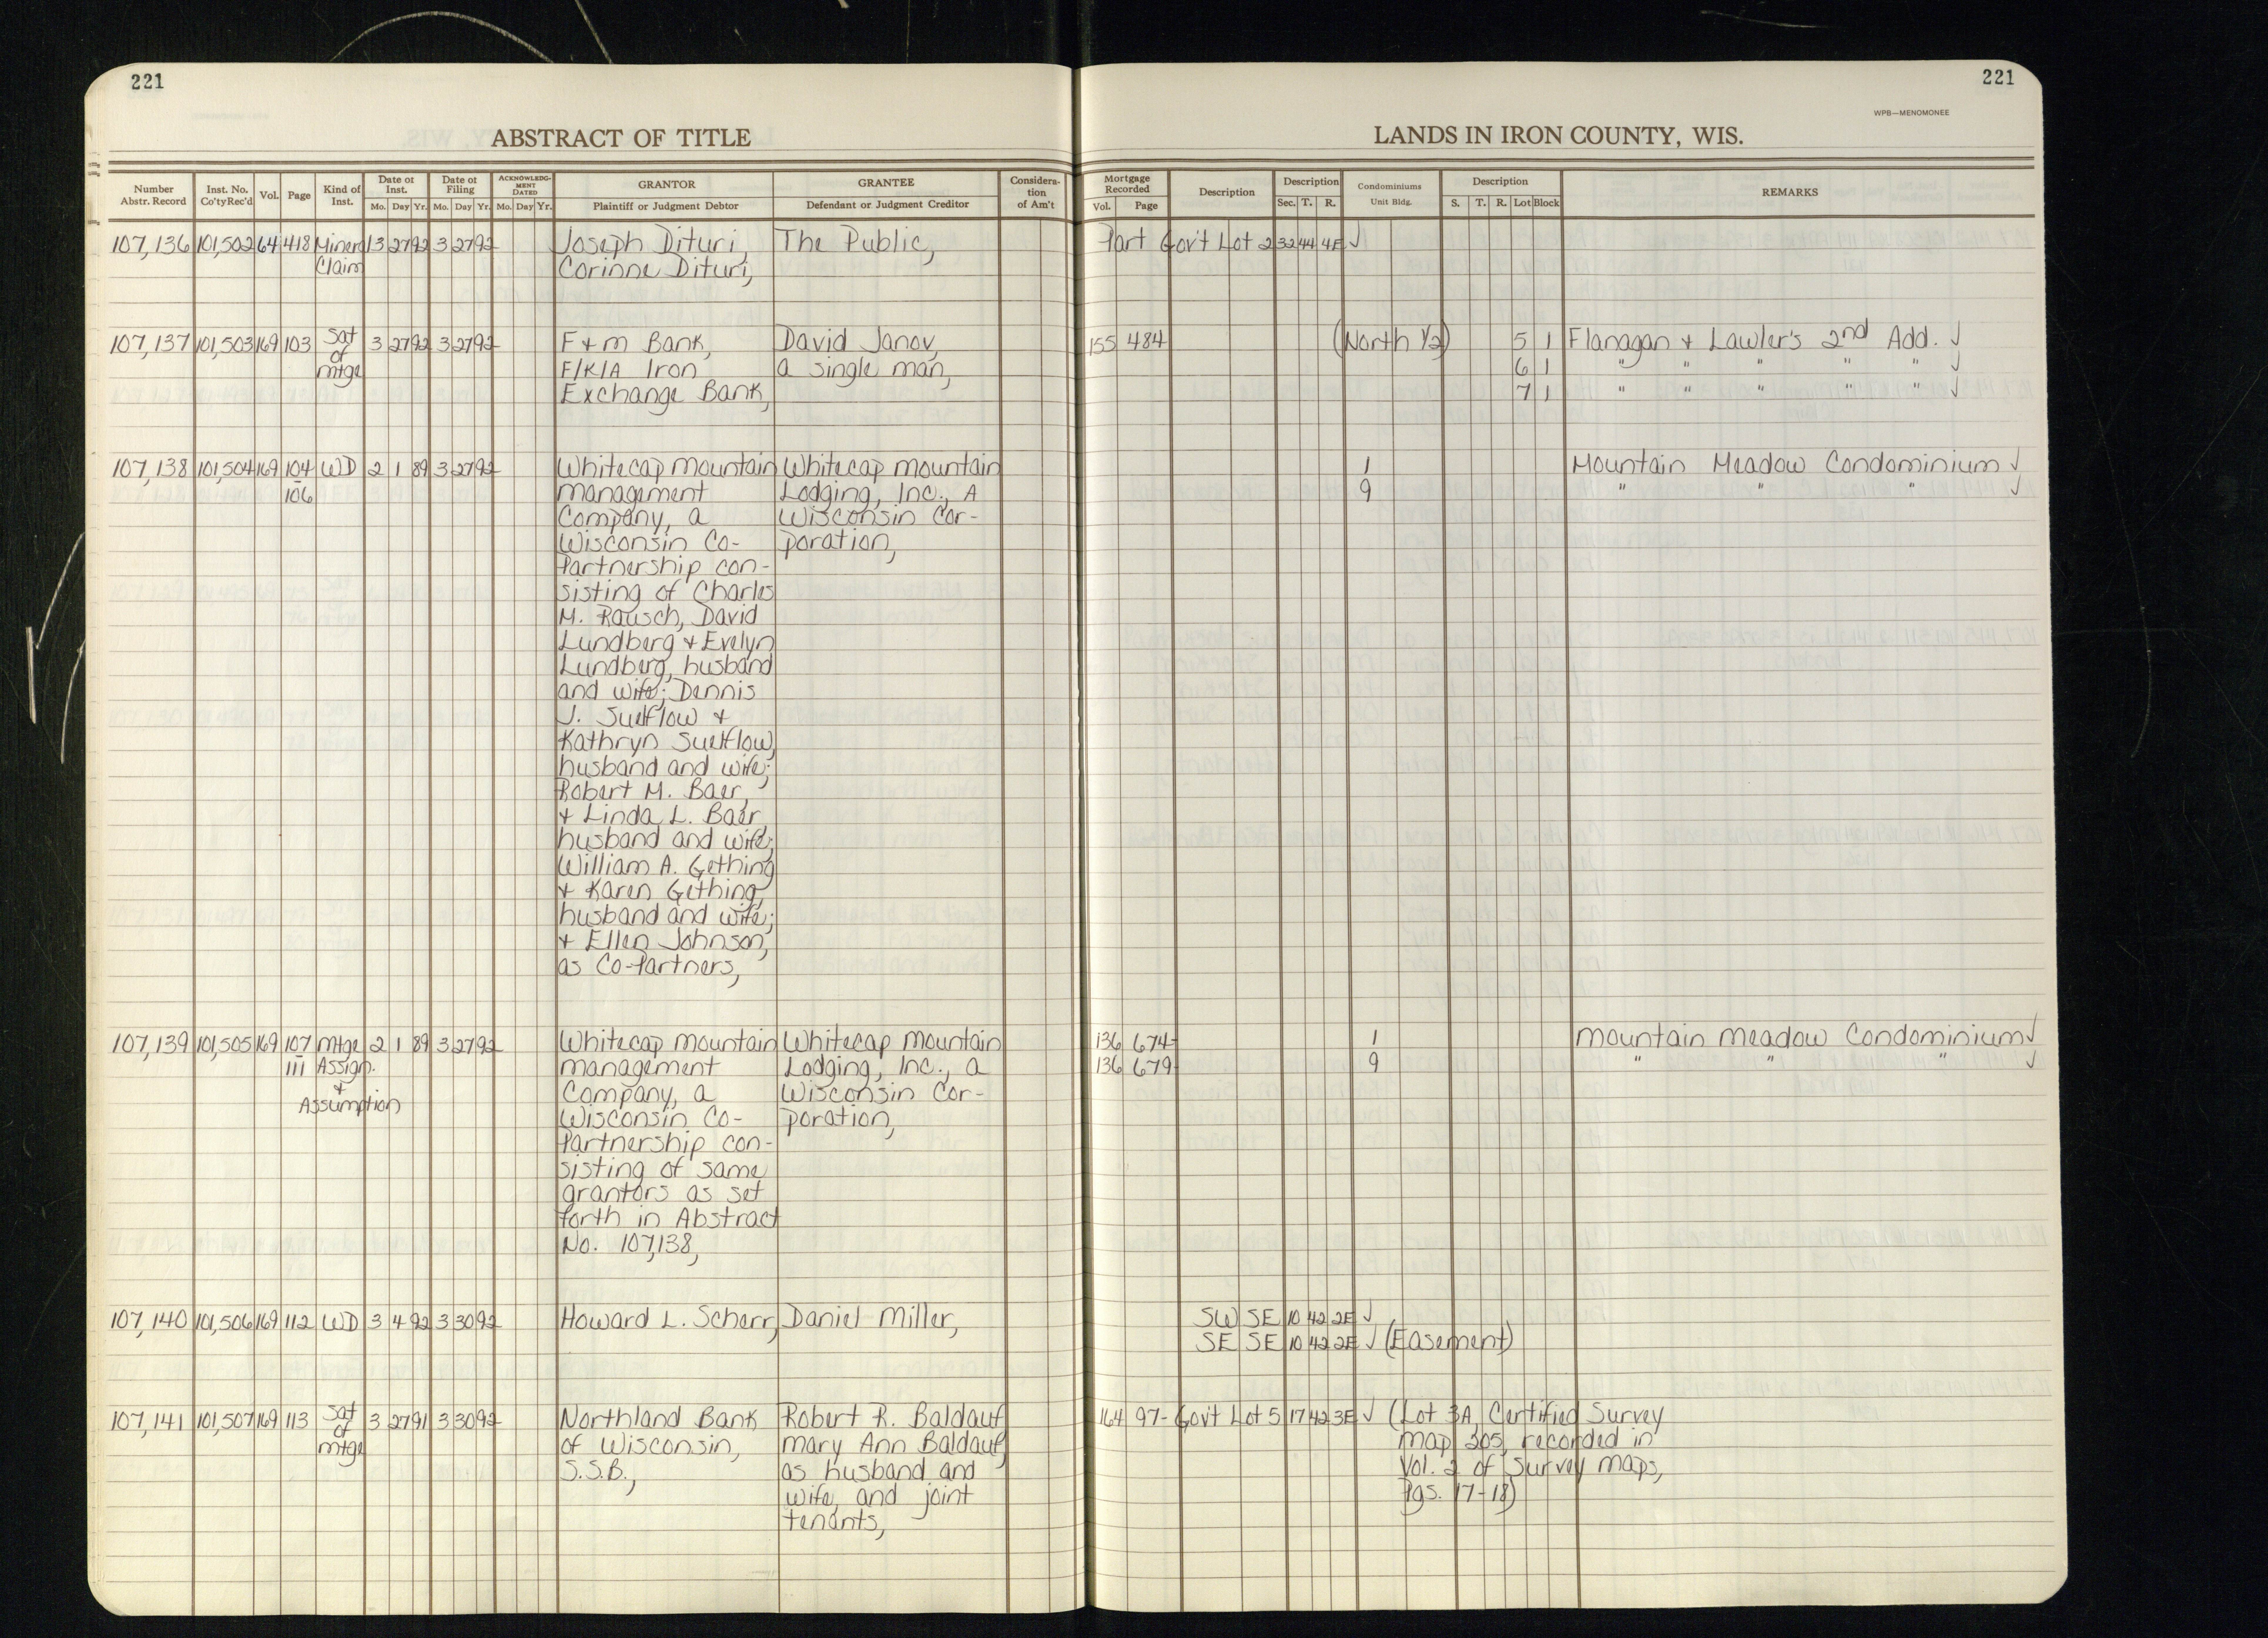 221
221
WPB—MENOMONEE
ABSTRACT OF TITLE
LANDS IN IRON COUNTY, WIS.
Number Abstr. Record | Inst. No. Co'ty Rec'd | Vol. | Page | Kind of Inst. | Date of Inst. Mo. Day Yr. | Date of Filing Mo. Day Yr. | ACKNOWLEDGMENT DATED Mo. Day Yr. | GRANTOR Plaintiff or Judgment Debtor | GRANTEE Defendant or Judgment Creditor | Consideration of Am't | Mortgage Recorded Vol. Page | Description | Description Sec. T. R. | Condominiums Unit Bldg. | Description S. T. R. Lot Block | REMARKS
107,136 101,502 64 418 Mineral 3 27 92 3 27 92 Joseph Dituri, The Public, Part Gov't Lot 2 32 44 4E ✓
Claim Corinne Dituri,
107,137 101,503 169 103 Sat 3 27 92 3 27 92 F+M Bank, David Janov, 155 484 (North 1/2) 5 1 Flanagan + Lawler's 2nd Add. ✓
of F/K/A Iron a single man, 6 1 " " " " " ✓
mtge Exchange Bank, 7 1 " " " " " ✓
107,138 101,504 169 104 WD 2 1 89 3 27 92 Whitecap Mountain Whitecap Mountain 1 Mountain Meadow Condominium ✓
- 106 Management Lodging, Inc., A 9 " " " ✓
Company, a Wisconsin Cor-
Wisconsin Co- poration,
Partnership con-
sisting of Charles
M. Rausch, David
Lundberg + Evelyn
Lundberg, husband
and wife; Dennis
J. Sueflow +
Kathryn Sueflow,
husband and wife;
Robert M. Baer
+ Linda L. Baer,
husband and wife;
William A. Gething
+ Karen Gething,
husband and wife;
+ Ellen Johnson,
as Co-Partners,
107,139 101,505 169 107 Mtge 2 1 89 3 27 92 Whitecap Mountain Whitecap Mountain 136 674- 1 Mountain Meadow Condominium ✓
- 111 Assign. Management Lodging, Inc., a 136 679- 9 " " " ✓
+ Company, a Wisconsin Cor-
Assumption Wisconsin Co- poration,
Partnership con-
sisting of same
grantors as set
forth in Abstract
No. 107,138,
107,140 101,506 169 112 WD 3 4 92 3 30 92 Howard L. Scherr, Daniel Miller, SW SE 10 42 2E ✓
SE SE 10 42 2E ✓ (Easement)
107,141 101,507 169 113 Sat 3 27 91 3 30 92 Northland Bank Robert R. Baldauf 164 97- Gov't Lot 5 17 42 3E ✓ (Lot 3A, Certified Survey
of of Wisconsin, Mary Ann Baldauf, Map 305, recorded in
mtge S.S.B., as husband and Vol. 2 of Survey Maps,
wife, and joint Pgs. 17-18)
tenants,